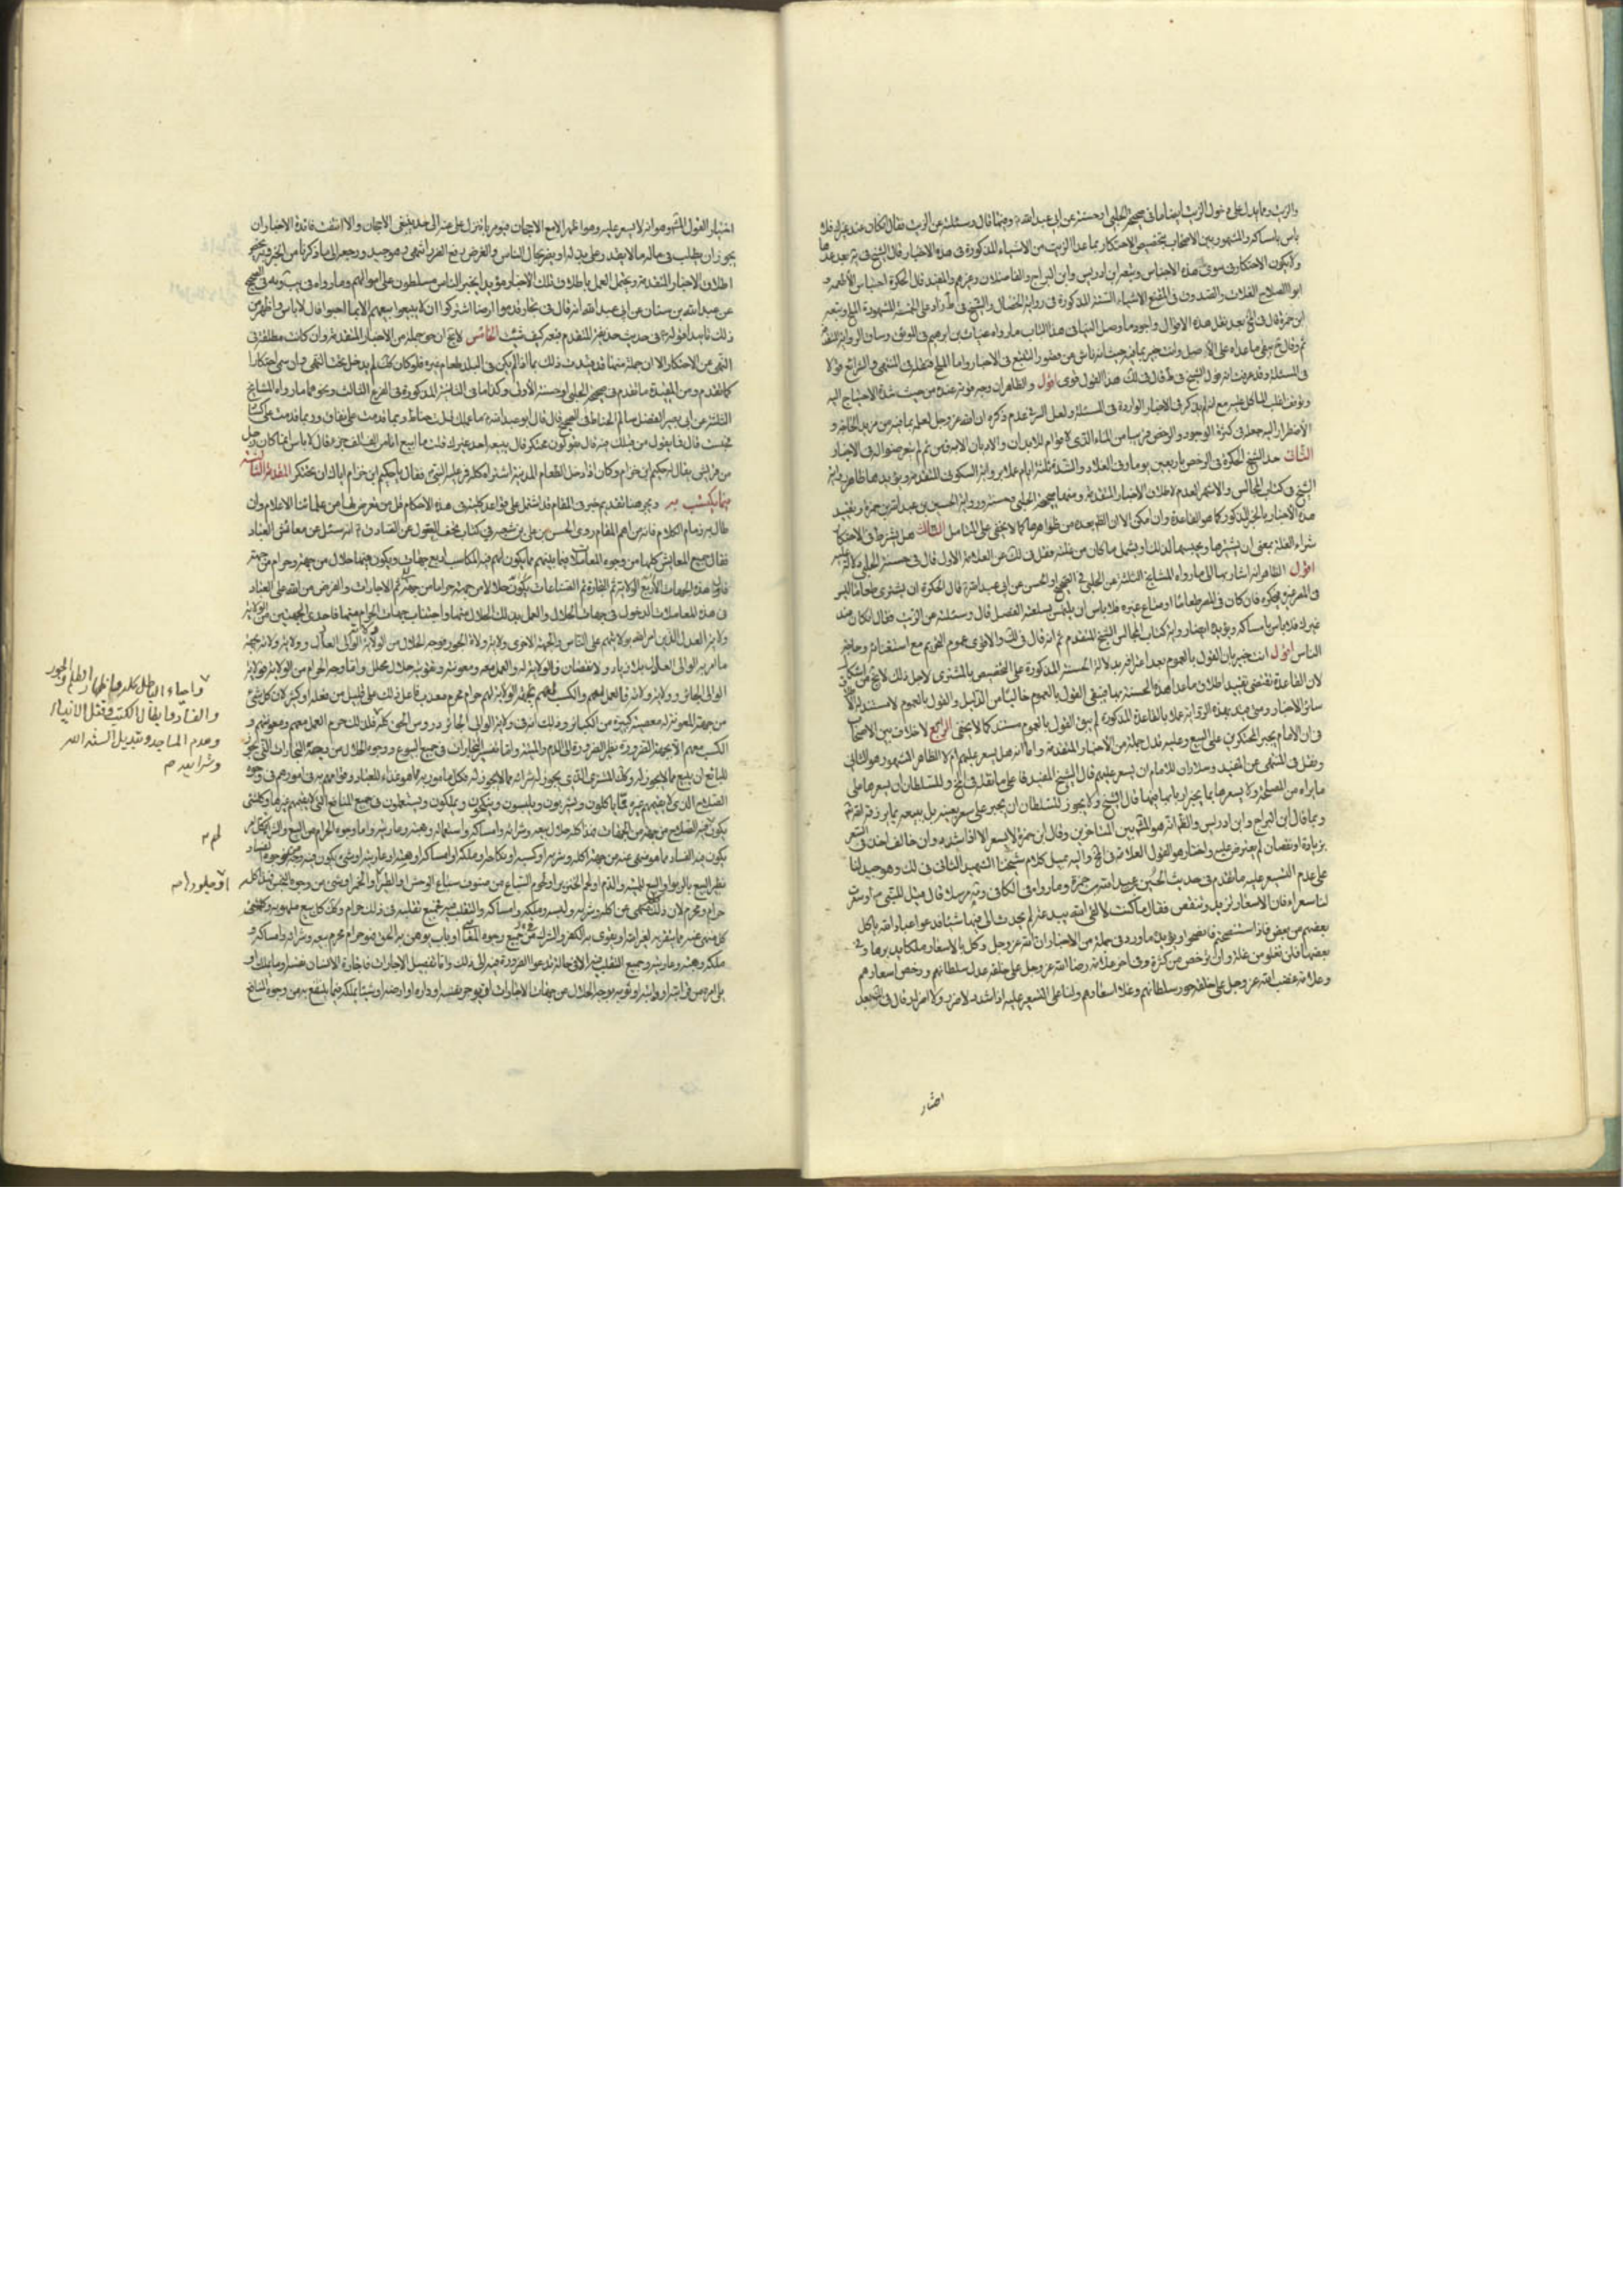 والزيت ومما يدل على دخول الزيت ايضا ما في صحيحة الحلبي او حسنته عن ابي عبد الله وفيها قال وسئلته عن الزيت فقال ان كان عند غيرك فلا
باس بامساكه والمشهور بين الاصحاب تخصيص الاحتكار بما عدا الزيت من الاشياء المذكورة في هذه الاخبار قال الشيخ في
ولا يكون الاحتكار في سوى هذه الاجناس وتبعه ابن ادريس وابن البراج والفاضلان وغيرهم والمفيد قال الحكرة احتباس الاطعمة
ابو الصلاح الغلات والصدوق في المقنع الاشياء الستة المذكورة في رواية الخصال والشيخ في ط زاد على الخمسة المشهورة الملح وتبعه
ابن حمزة قال في بعد نقل هذه الاقوال واجود ما وصل الينا في هذا الباب ما رواه غياث بن ابرهيم في الموثق وساق الرواية
في المسئلة وقد عرفت انه قول الشيخ في ط قال في لك هذا القول قوى اقول والظاهر ان وجه قوته عنده من حيث شدة الاحتياج اليه
وتوقف اغلب المآكل عليه مع انه لم يذكر في الاخبار الواردة في المسئلة ولعل السر في عدم ذكره ان الله عز وجل لعلمه بما فيه من مزيد الحاجة و
الاضطرار اليه جعله في كثرة الوجود والرخص قريبا من الماء الذي لا قوام للابدان والاديان الا به فمن ثم لم يتعرضوا له في الاخبار
الثاني حد الشيخ الحكرة في الرخص باربعين يوما وفي الغلاء والشدة بثلثة ايام عملا برواية السكوني المتقدمة ويؤيدها ظاهر رواية
الشيخ في كتاب المجالس والاشهر العدم لاطلاق الاخبار المتقدمة ومنها صحيحة الحلبي وحسنته ورواية الحسين بن عبيد الله بن حمزة وتقييد
هذه الاخبار بالخبر المذكور كما هو القاعدة وان امكن الا ان الظاهر بعده من ظواهرها كما لا يخفى على المتامل الثالث هل يشترط في الاحتكار
شراء الغلة بمعنى ان يشتريها ويحبسها لذلك او يشمل ما كان من غلته ونقل في لك عن العلامة الاول قال في حسنة الحلبي دلالة عليه
اقول الظاهر انه اشار بها الى ما رواه المشايخ الثلثة عن الحلبي في الصحيح او الحسن عن ابي عبد الله قال الحكرة ان يشترى طعاما ليس
في المصر غيره فيحتكره فان كان في المصر طعاما او متاع غيره فلا باس ان يلتمس بسلعته الفضل قال وسئلته عن الزيت فقال ان كان عند
غيرك فلا باس بامساكه ويؤيده ايضا رواية كتاب المجالس للشيخ المتقدم ثم انه قال في لك والاقوى عموم التحريم مع استغنائه وحاجة
الناس اقول انت خبير بان القول بالعموم بعد اعترافه بدلالة الحسنة المذكورة على التخصيص بالمشترى لاجل ذلك لا يخ من اشكال
لان القاعدة تقتضى تقييد اطلاق ما عدا هذه الحسنة بها فيبقى القول بالعموم خاليا من الدليل والقول بالعموم لا مستند له الا
سائر الاخبار ومتى قيدت بهذه الرواية عملا بالقاعدة المذكورة لم يبق للقول بالعموم مستند كما لا يخفى الرابع لا خلاف بين الاصحاب
في ان الامام يجبر المحتكرين على البيع وعليه تدل جملة من الاخبار المتقدمة واما انه هل يسعر عليهم ام لا الظاهر المشهور هو الثاني
ونقل في المنتهى عن المفيد وسلار ان للامام ان يسعر عليهم قال الشيخ المفيد فا على ما نقل في وللسلطان ان يسعرها على
ما يراه من المصلحة ولا يسعرها بما يخسر اربابها فيها قال الشيخ ولا يجوز للسلطان ان يجبر على سعر بعينه بل يبيعه بما يرزقه الله تع
وبه قال ابن البراج وابن ادريس والظاهر انه هو المشهور بين المتاخرين وقال ابن حمزة لا يسعر الا اذا تشدد وان خالف احد في السعر
بزيادة او نقصان لم يعترض عليه واختار هو القول العلامة في واليه يميل كلام شيخنا الشهيد الثاني في لك وهو جيد لنا
على عدم التسعير عليه ما تقدم في حديث الحسين بن عبيد الله بن حمزة وما رواه في الكافي مرسلا قال قيل للنبي ص لو سعرت
لنا سعرا فان الاسعار تزيد وتنقص فقال ما كنت لالقى الله ببدعة لم يحدث الى فيها شيئا فدعوا عباد الله ياكل
بعضهم من بعض فاذا استنصحتم فانصحوا ويؤيده ما ورد في جملة من الاخبار ان الله عز وجل وكل بالاسعار ملكا يدبرها وفي
بعضها فلن تغلو من قلة ولن ترخص من كثرة وفي اخر علامة رضا الله عز وجل على خلقه عدل سلطانهم ورخص اسعارهم
وعلامة غضب الله عز وجل على خلقه جور سلطانهم وغلاء اسعارهم ولنا على التسعير عليه اذا تشدد لا ضرر ولا اضرار قال في لك بعد
اختيار
اختيار القول المشهور هو انه لا يسعر عليه وهو اظهر الا مع الاجحاف فيؤمر بالنزول عن عنده الى حد ينتفى الاجحاف والا انتفت فائدة الاجبار اذ
يجوز ان يطلب في ماله ما لا يقدر على بذله او يضر بحال الناس والغرض دفع الضرر انتهى وهو جيد
اطلاق الاخبار المتقدمة ويحتمل العمل باطلاق تلك الاخبار مؤيدا بخبر الناس مسلطون على اموالهم وما رواه في
عن عبد الله بن سنان عن ابي عبد الله انه قال في تجار قدموا ارضا اشتركوا ان لا يبيعوا بيعهم الا بما احبوا قال لا باس
ذلك تاييدا قوله في حديث حذيفة المتقدم فبعه كيف شئت الخامس لا يخ ان جملة من الاخبار المتقدمة وان كانت مطلقة في
النهى عن الاحتكار الا ان جملة منها قد قيدت ذلك بما اذا لم يكن في البلد طعام غيره فلو كان كك لم يدخل تحت النهى وان سمى احتكارا
كما تقدم ومن المقيدة ما تقدم في صحيحة الحلبي او حسنته الاولى وكذا ما في الثانية المذكورة في الفرع الثالث ونحوهما ما رواه المشايخ
الثلثة عن ابي الفضل سالم الحناط في الصحيح قال قال ابو عبد الله ما عملك قلت حناط وربما قدمت على نفاق وربما قدمت على كساد
فحبست قال فما يقول من قبلك فيه قال يقولون محتكر قال يبيعه احد غيرك قلت ما ابيع انا من الف جزء جزء قال لا باس انما كان ذلك رجل
من قريش يقال له حكيم ابن حزام وكان اذا دخل الطعام المدينة اشتراه كله فمر عليه النبي ص فقال يا حكيم ابن حزام اياك ان تحتكر المقدمة الثالثة
فيما يكتسب به ويجب هنا تقديم خبر في المقام قد اشتمل على قواعد كلية في هذه الاحكام قل من تعرض لها من علمائنا الاعلام وان
طال به زمام الكلام فانه من اهم المقام روى الحسن بن علي بن شعبه في كتاب تحف العقول عن الصادق ع انه سئل عن معائش العباد
فقال جميع المعايش كلها من وجوه المعاملات فيما بينهم مما يكون لهم فيه المكاسب اربع جهات ويكون فيها حلال من جهة وحرام من جهة
فاول هذه الجهات الاربع الولاية ثم التجارة ثم الصناعات تكون حلالا من جهة حراما من جهة ثم الاجارات والفرض من الله على العباد
في هذه المعاملات الدخول في جهات الحلال والعمل بذلك الحلال منها واجتناب جهات الحرام منها فاحدى الجهتين من الولاية
ولاية العدل الذين امر الله بولايتهم على الناس والجهة الاخرى ولاية ولاة الجور فوجه الحلال من الولاية ولاية الوالى العادل وولاية ولاته بجهة
ما امر به الوالى العادل بلا زيادة ولا نقصان فالولاية له والعمل معه ومعونته وتقويته حلال محلل واما وجه الحرام من الولاية فولاية
الوالى الجائر وولاية ولاته فالعمل لهم والكسب لهم بجهة الولاية لهم حرام محرم معذب فاعل ذلك على قليل من فعله او كثير لان كل شئ
من جهة المعونة له معصية كبيرة من الكبائر وذلك ان في ولاية الوالى الجائر دروس الحق كله فلذلك حرم العمل معهم ومعونتهم و
الكسب معهم الا بجهة الضرورة نظير الضرورة الى الدم والميتة واما تفسير التجارات في جميع البيوع ووجوه الحلال من وجه التجارات التي يجوز
للبائع ان يبيع مما لا يجوز له وكك المشترى الذي يجوز له شرائه مما لا يجوز له فكل مامور به مما هو غذاء للعباد وقوامهم به في امورهم في وجوه
الصلاح الذي لا يقيمهم غيره مما ياكلون ويشربون ويلبسون وينكحون ويملكون ويستعملون في جميع المنافع التي لا يقيمهم غيرها وكل شئ
يكون لهم فيه الصلاح من جهة من الجهات فهذا كله حلال بيعه وشرائه وامساكه واستعماله وهبته وعاريته واما وجوه الحرام من البيع والشراء فكل امر
يكون فيه الفساد مما هو منهى عنه من جهة اكله وشربه او كسبه او نكاحه او ملكه او امساكه او هبته او عاريته او شئ يكون فيه وجه من وجوه الفساد
نظير البيع بالربوا او البيع للميتة والدم او لحم الخنزير او لحوم السباع من صنوف سباع الوحش او الطير او جلودها او الخمر او شئ من وجوه النجس فهذا كله
حرام ومحرم لان ذلك كله منهى عن اكله وشربه ولبسه وملكه وامساكه والتقلب فيه فجميع تقلبه في ذلك حرام وكك كل بيع ملهو به وكل
منهى عنه مما يتقرب به لغير الله او يقوى به الكفر والشرك من جميع وجوه المعاصى او باب يوهن به الحق فهو حرام محرم بيعه وشرائه وامساكه و
ملكه وهبته وعاريته وجميع التقلب فيه الا في حال تدعوا الضرورة فيه الى ذلك واما تفسير الاجارات فاجارة الانسان نفسه او ما يملك او
يلى امره من قرابته او دابته او ثوبه بوجه الحلال من جهات الاجارات او يوجر نفسه او داره او ارضه او شيئا يملكه فيما ينتفع به من وجوه المنافع
واحياء الباطل كله واظهار الظلم والجور
والفساد وابطال الكتب وقتل الانبياء
وهدم المساجد وتبديل سنة الله
وشرايعه ص
لهم
او جلودها ص